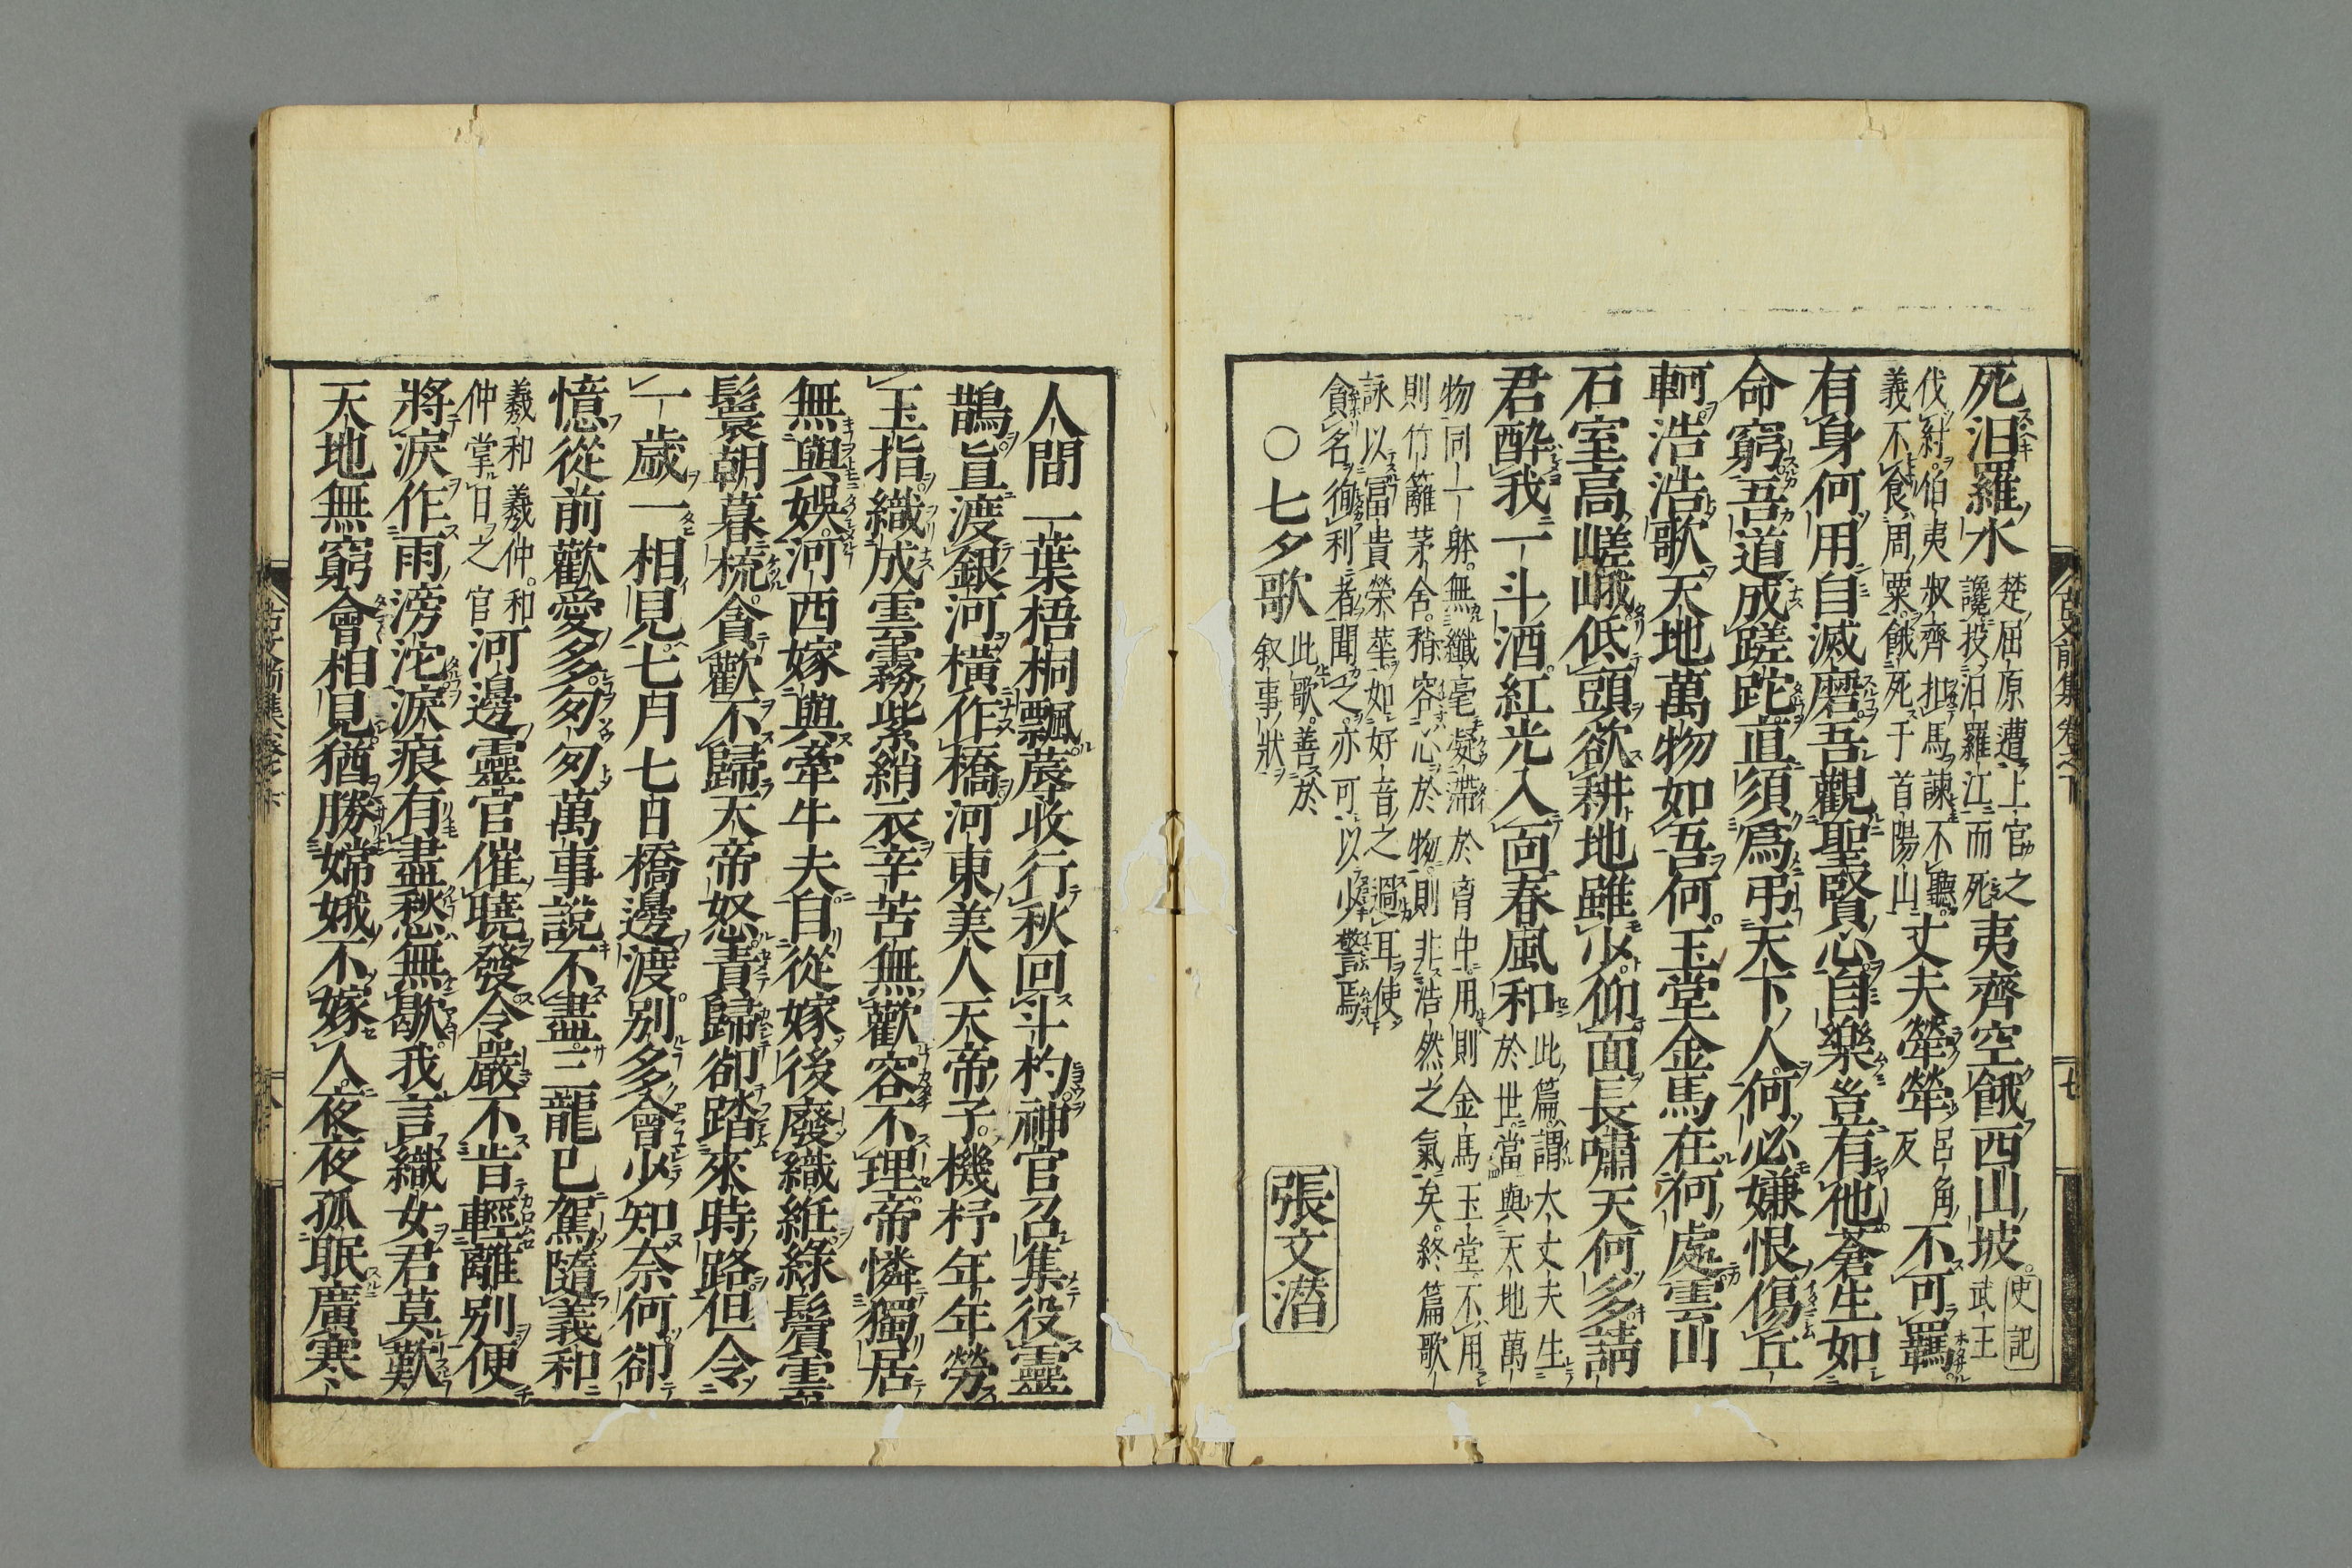 古文前集卷之下 七
死汨羅水
楚屈原遭上官之
讒投汨羅江而死
夷齊空餓西山坡
史記
武王
伐紂伯夷叔齊扣馬諫不聽
義不食周粟餓死于首陽山
丈夫犖犖
呂角
反
不可羈
有身何用自滅磨吾觀聖賢心自樂豈有他蒼生如
命窮吾道成蹉跎直須爲弔天下人何必嫌恨傷丘
軻浩浩歌天地萬物如吾何玉堂金馬在何處雲山
石室高嵯峨低頭欲耕地雖少仰面長嘯天何多請
君醉我一斗酒紅光入面春風和
此篇謂太丈夫生
於世當與天地萬
物同一躰無纖毫凝滯於胷中用則金馬玉堂不用
則竹籬茅舍稍容心於物則非浩然之氣矣終篇歌
詠以冨貴榮華如好音之過耳使
貪名徇利者聞之亦可以少警焉
○七夕歌
此歌善於
叙事狀
張文潛
人間一葉梧桐飄蓐收行秋回斗杓神官召集役靈
鵲直渡銀河橫作橋河東美人天帝子機杼年年勞
玉指織成雲霧紫綃衣辛苦無歡容不理帝憐獨居
無與娛河西嫁與牽牛夫自從嫁後廢織紝綠鬢雲
鬟朝暮梳貪歡不歸天帝怒責歸卻踏來時路但令
一歲一相見七月七日橋邊渡別多會少知奈何卻
憶從前歡愛多匆匆萬事說不盡玉龍已駕隨義和
羲和羲仲和
仲掌日之官
河邊靈官催曉發令嚴不肯輕離別便
將淚作雨滂沱淚痕有盡愁無歇我言織女君莫歎
天地無窮會相見猶勝嫦娥不嫁人夜夜孤眠廣寒